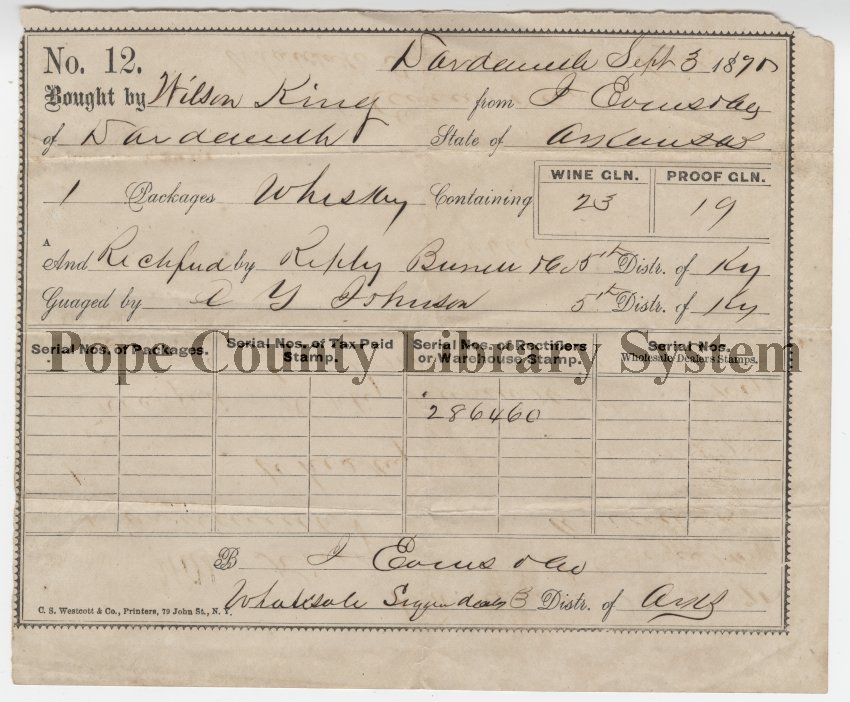 No. 12.
Dardanelle Sept 3 1870
Bought by Wilson King from J Evins & Co
of Dardanelle State of Arkansas
1 Packages Whiskey Containing
WINE GLN. PROOF GLN.
23 19
A
And Rectified by 5th Distr. of Ky
Guaged by A Y Johnson 5th Distr. of Ky
Serial Nos. of Packages. Serial Nos. of Tax Paid Stamp. Serial Nos. of Rectifiers or Warehouse Stamp. Serial Nos. Wholesale Dealers Stamps.
Pope County Library System
286460
B J Evins & Co
Wholesale 3 Distr. of Arks
C. S. Westcott & Co., Printers, 79 John St., N. Y.